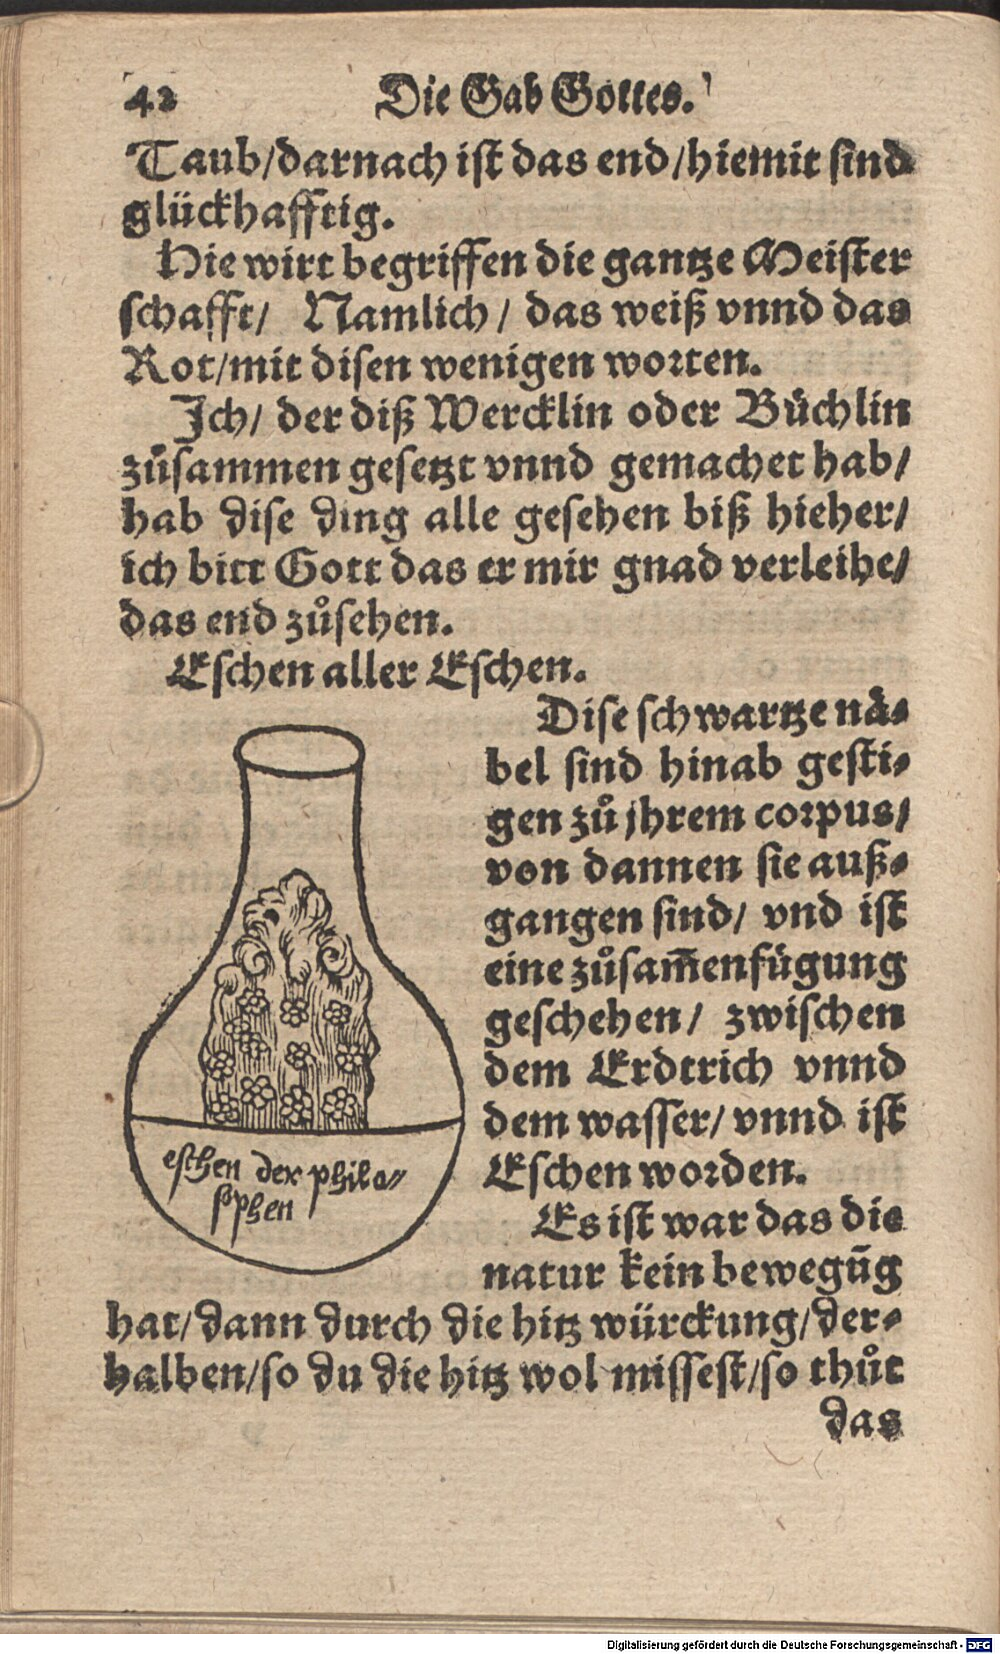 42 Die Gab Gottes.
Taub/darnach ist das end/hiemit sind
glückhafftig.
Hie wirt begriffen die gantze Meister
schafft/ Namlich/ das weiß vnnd das
Rot/mit disen wenigen worten.
Ich/ der diß Wercklin oder Bůchlin
zůsammen gesetzt vnnd gemachet hab/
hab dise ding alle gesehen biß hieher/
ich bitt Gott das er mir gnad verleihe/
das end zůsehen.
Eschen aller Eschen.
Dise schwartze nä⸗
bel sind hinab gesti⸗
gen zů jhrem corpus/
von dannen sie auß⸗
gangen sind/ vnd ist
eine zůsam̃enfůgung
geschehen/ zwischen
dem Erdtrich vnnd
dem wasser/ vnnd ist
Eschen worden.
eschen der philo⸗
sophen
Es ist war das die
natur kein bewegūg
hat/dann durch die hitz würckung/der⸗
halben/so du die hitz wol missest/so thůt
das
Digitalisierung gefördert durch die Deutsche Forschungsgemeinschaft - DFG